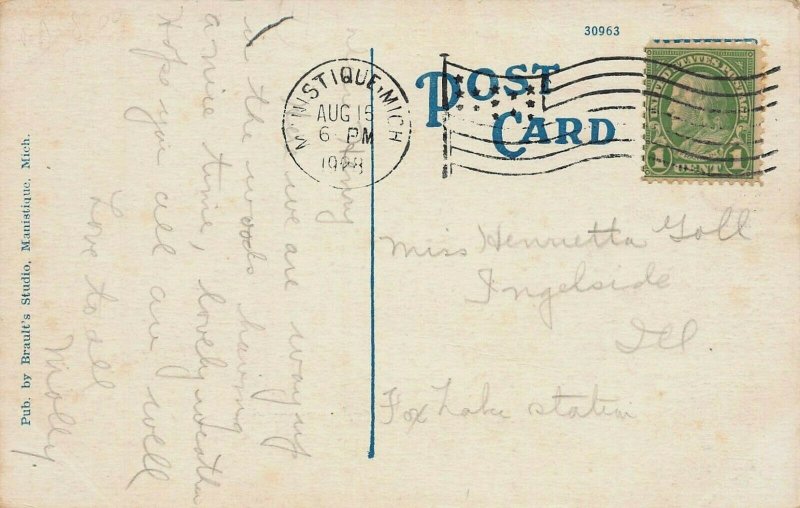 30963
POST
CARD
MANISTIQUE, MICH
AUG 15
6 PM
1928
UNITED STATES POSTAGE
1 CENT 1
Miss Henrietta Goll
Ingelside
Ill
Fox Lake station
we are way up
in the woods having
a nice time, lovely weather
Hope you all are well
Love to all
Molly
Pub. by Brault's Studio, Manistique, Mich.